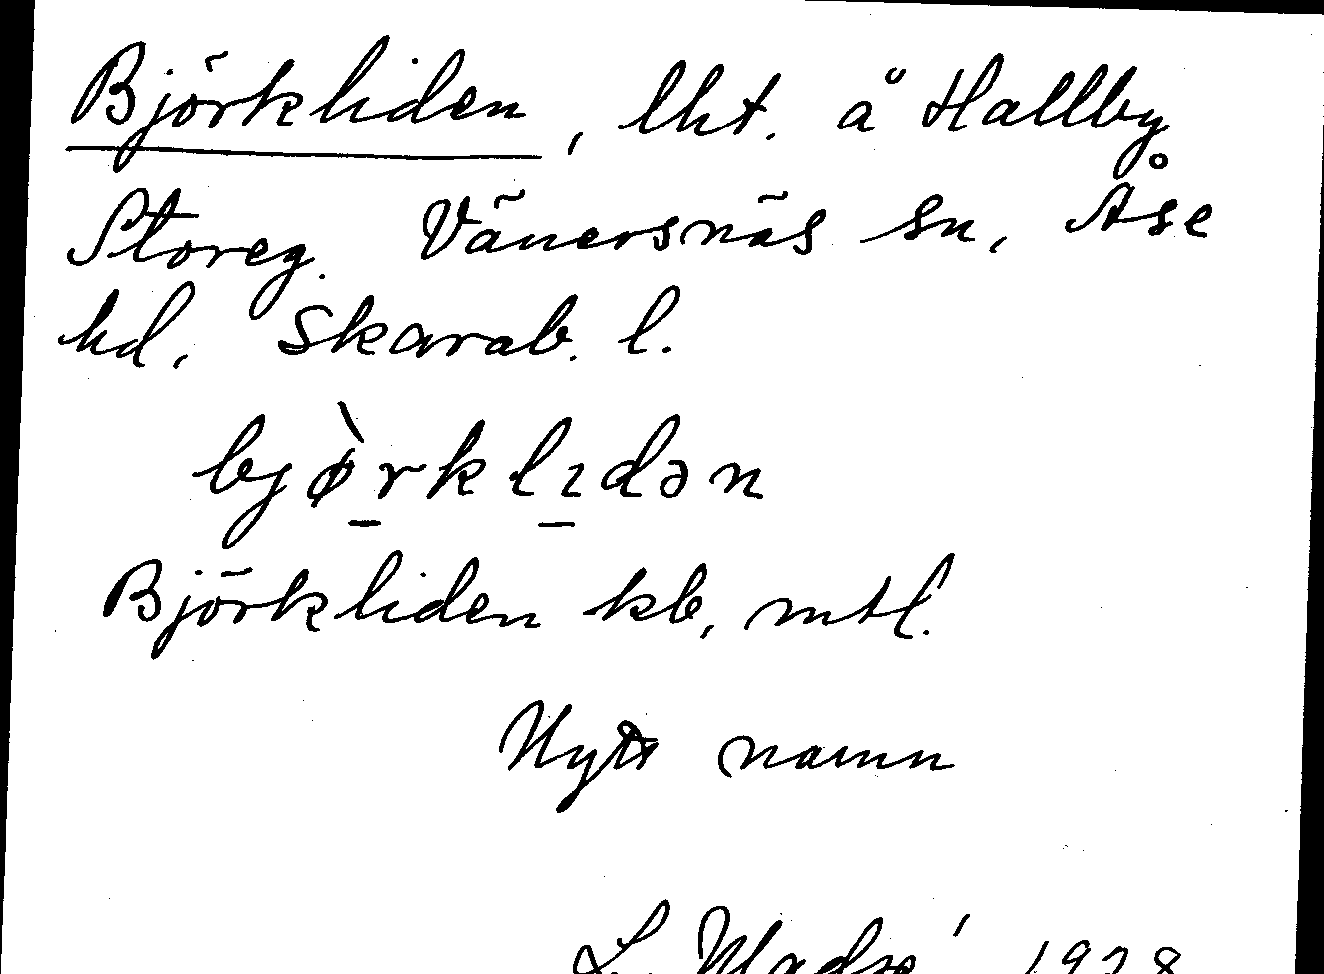 Björkliden, lht. å Hallby
Storeg. Vänersnäs sn, Åse
hd, Skarab. l.
bjø̀r̲klı̲dən
Björkliden kb, mtl.
Nytt namn
1928